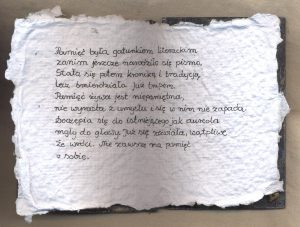 Pamięć była gatunkiem literackim
zanim jeszcze narodziło się pismo.
Stała się potem kroniką i tradycją,
lecz śmierdziała już trupem.
Pamięć żywa jest niepamiętna,
nie wyrasta z umysłu i się w nim nie zapada.
Doczepia się do istniejącego jak aureola
mgły do głowy. Już się rozwiała, wątpliwe,
że wróci. Nie zawsze ma pamięć
o sobie.